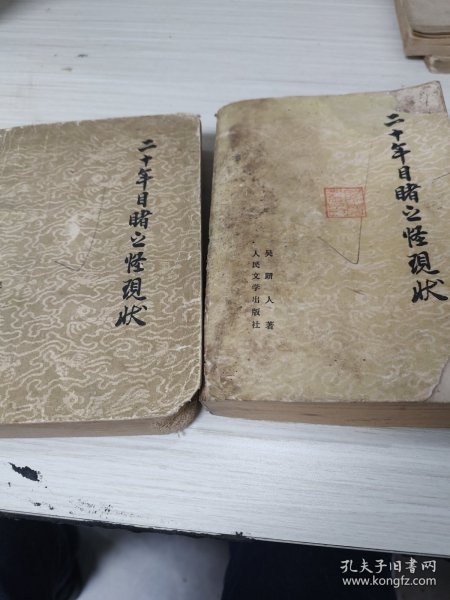 二十年目睹之怪現状
二十年目睹之怪現状
吴趼人著
人民文学出版社
孔夫子旧书网
www.kongfz.com